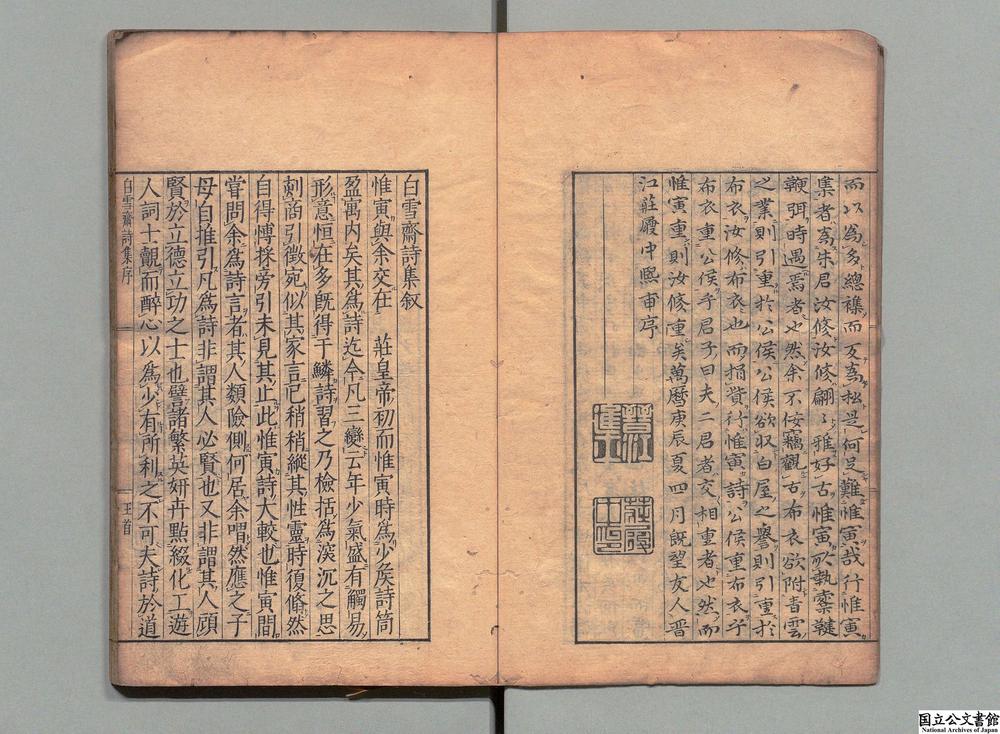 而以為多總襍而互為秘是何足難惟寅哉行惟寅
集者為朱君汝修汝修翩〻雅好古惟寅所執橐鞬
鞭弭時遇焉者也然余不佞竊觀古布衣欲附青雲
之業則引重於公侯公侯欲収白屋之譽則引重於
布衣汝修布衣也而捐貲行惟寅詩公侯重布衣乎
布衣重公侯乎君子曰夫二君者交相重者也然而
惟寅重則汝修重矣萬曆庚辰夏四月既望友人晉
江莊履中熙甫序
白雪齋詩集叙
惟寅與余交在 莊皇帝初而惟寅時為少矦詩筒
盈寓内矣其為詩迄今凡三變云年少氣盛有觸易
形意恒在多既得于鱗詩習之乃檢括為深沉之思
刺商引徵宛似其家言已稍稍縱其性靈時復翛然
自得愽採旁引未見其止此惟寅詩大較也惟寅間
甞問余為詩言者其人類險側何居余喟然應之子
母自推引凡為詩非謂其人必賢也又非謂其人頋
賢於立德立功之士也譬諸繁英妍卉點綴化工遊
人詞士覿而醉心以為少有所利之不可夫詩於道
白雪齋詩集序
国立公文書館
National Archives of Japan